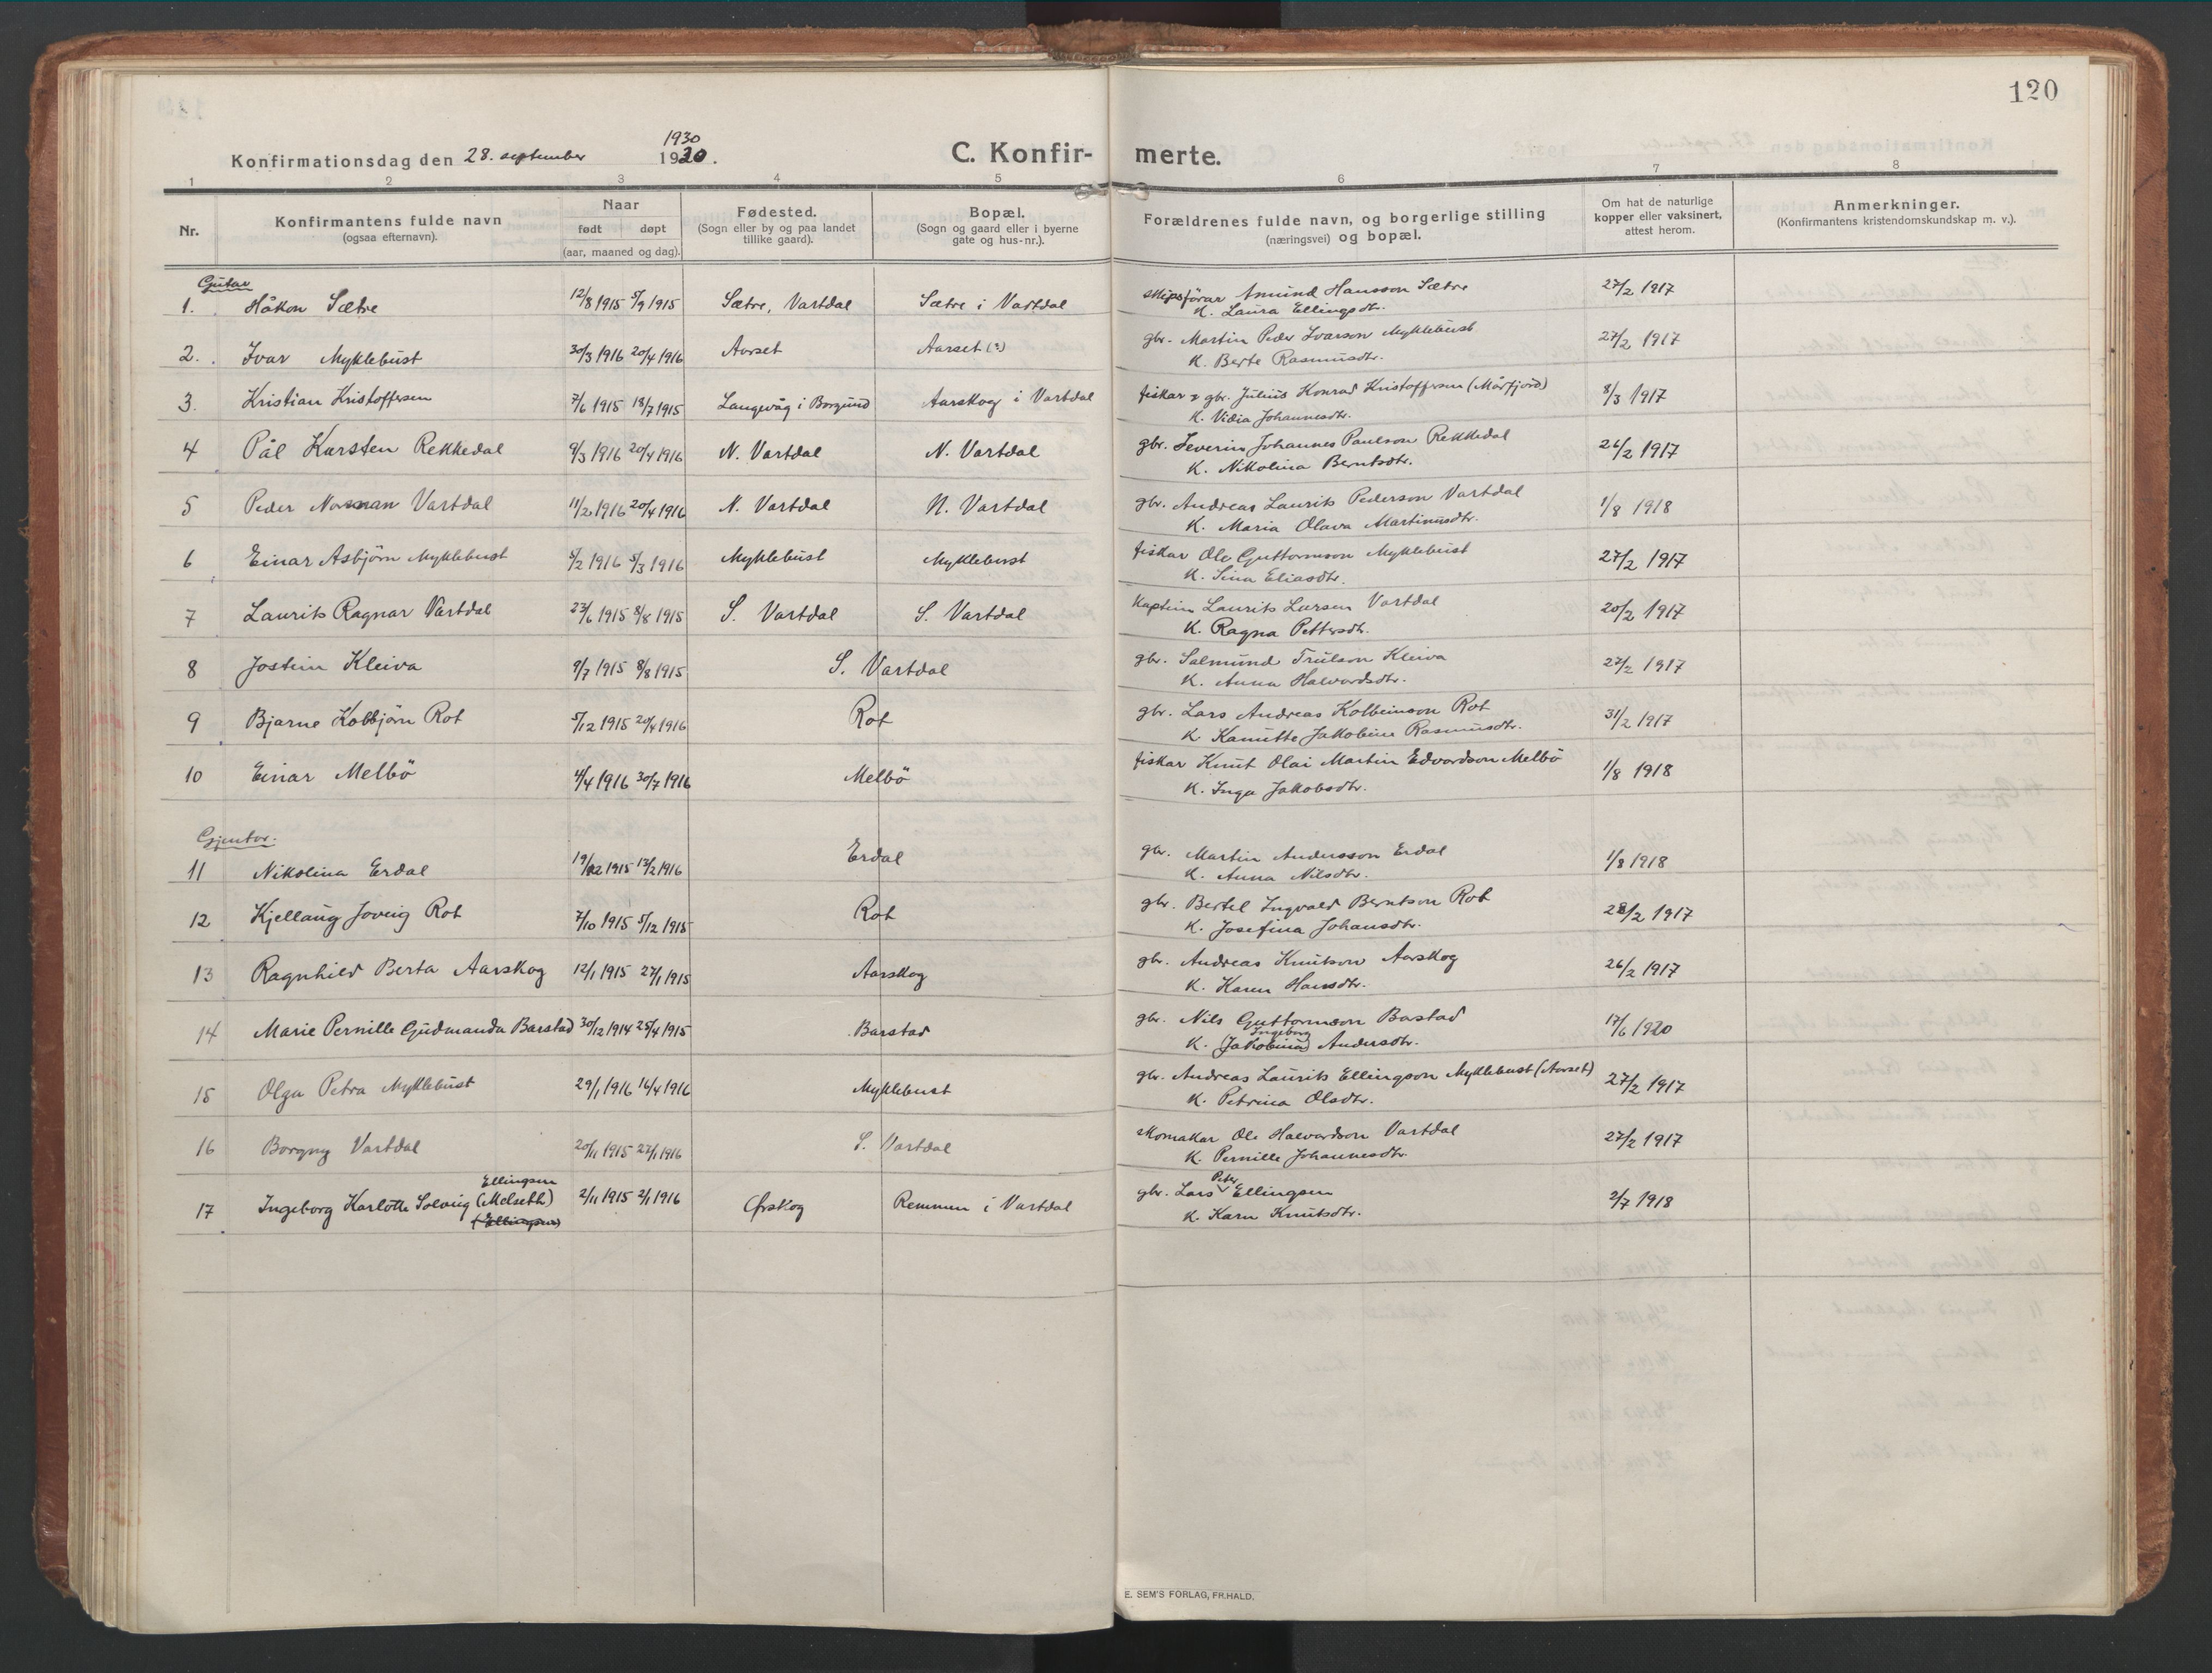 120
1930
Konfirmationsdag den 28. september 1920. C. Konfir- merte.
1 2 3 4 5 6 7 8
Nr. Konfirmantens fulde navn (ogsaa efternavn). Naar født døpt (aar, maaned og dag). Fødested. (Sogn eller by og paa landet tillike gaard). Bopæl. (Sogn og gaard eller i byerne gate og hus-nr.). Forældrenes fulde navn, og borgerlige stilling (næringsvei) og bopæl. Om hat de naturlige kopper eller vaksinert, attest herom. Anmerkninger. (Konfirmantens kristendomskundskap m. v.).
Gutar
1. Håkon Sætre 12/8 1915 5/9 1915 Sætre, Vartdal Sætre i Vartdal skipsförar Amund Hansson Sætre 27/2 1917
K. Laura Ellingsdtr.
2. Ivar Myklebust 30/3 1916 20/4 1916 Aarset Aarset (?) gbr. Martin Peder Ivarson Myklebust 27/2 1917
K. Berte Rasmusdtr.
3. Kristian Kristoffersen 7/6 1915 18/7 1915 Langevåg i Borgund Aarskog i Vartdal fiskar & gbr. Julius Konrad Kristoffersen (Mårfjord) 8/3 1917
K. Vidia Johannesdtr.
4 Pål Karsten Rekkedal 9/3 1916 20/4 1916 N. Vartdal N. Vartdal gbr. Severin Johannes Paulson Rekkedal 26/2 1917
K. Nikolina Berntsdtr.
5 Peder Norman Vartdal 11/2 1916 20/4 1916 N. Vartdal N. Vartdal gbr. Andreas Laurits Pederson Vartdal 1/8 1918
K. Maria Olava Martinusdtr.
6 Einar Asbjörn Myklebust 5/2 1916 5/3 1916 Myklebust Myklebust fiskar Ole Guttormson Myklebust 27/2 1917
K. Sina Eliasdtr.
7 Laurits Ragnar Vartdal 23/6 1915 8/8 1915 S. Vartdal S. Vartdal Kaptein Laurits Larsen Vartdal 20/2 1917
K. Ragna Pettersdtr.
8 Jostein Kleiva 9/7 1915 8/8 1915 S. Vartdal gbr. Salmund Trulson Kleiva 27/2 1917
K. Anna Halvardsdtr.
9 Bjarne Kolbjörn Rot 5/12 1915 20/4 1916 Rot gbr. Lars Andreas Kolbeinson Rot 31/2 1917
K. Kanutte Jakobine Rasmusdtr.
10 Einar Melbö 4/4 1916 30/7 1916 Melbö fiskar Knut Olai Martin Edvardson Melbö 1/8 1918
K. Inga Jakobsdtr.
Gjentor.
11 Nikolina Erdal 19/12 1915 13/2 1916 Erdal gbr. Martin Andersson Erdal 1/8 1918
K. Anna Nilsdtr.
12 Kjellaug Joveig Rot 7/10 1915 5/12 1915 Rot gbr. Bertel Ingvald Berntson Rot 28/2 1917
K. Josefina Johansdtr.
13 Ragnhild Berta Aarskog 12/1 1915 27/1 1915 Aarskog gbr. Andreas Knutson Aarskog 26/2 1917
K. Karen Hansdtr.
14 Marie Pernille Gudmanda Barstad 30/12 1914 25/4 1915 Barstad gbr. Nils Guttormson Bastad 17/6 1920
Ingeborg
K. (Jakobina) Andersdtr.
15 Olga Petra Myklebust 29/1 1916 16/4 1916 Myklebust gbr. Andreas Laurits Ellingson Myklebust (Aarset) 27/2 1917
K. Petrina Olsdtr.
16 Borgny Vartdal 20/11 1915 27/1 1916 S. Vartdal skomakar Ole Halvardson Vartdal 27/2 1917
K. Pernille Johannesdtr.
Ellingsen Peter
17 Ingeborg Karlotte Solveig (Melseth) 2/11 1915 2/1 1916 Ørskog Remmen i Vartdal gbr. Lars Ellingsen 2/7 1918
(Ellingsen) K. Karn Knutsdtr.
E. SEM'S FORLAG, FR.HALD.